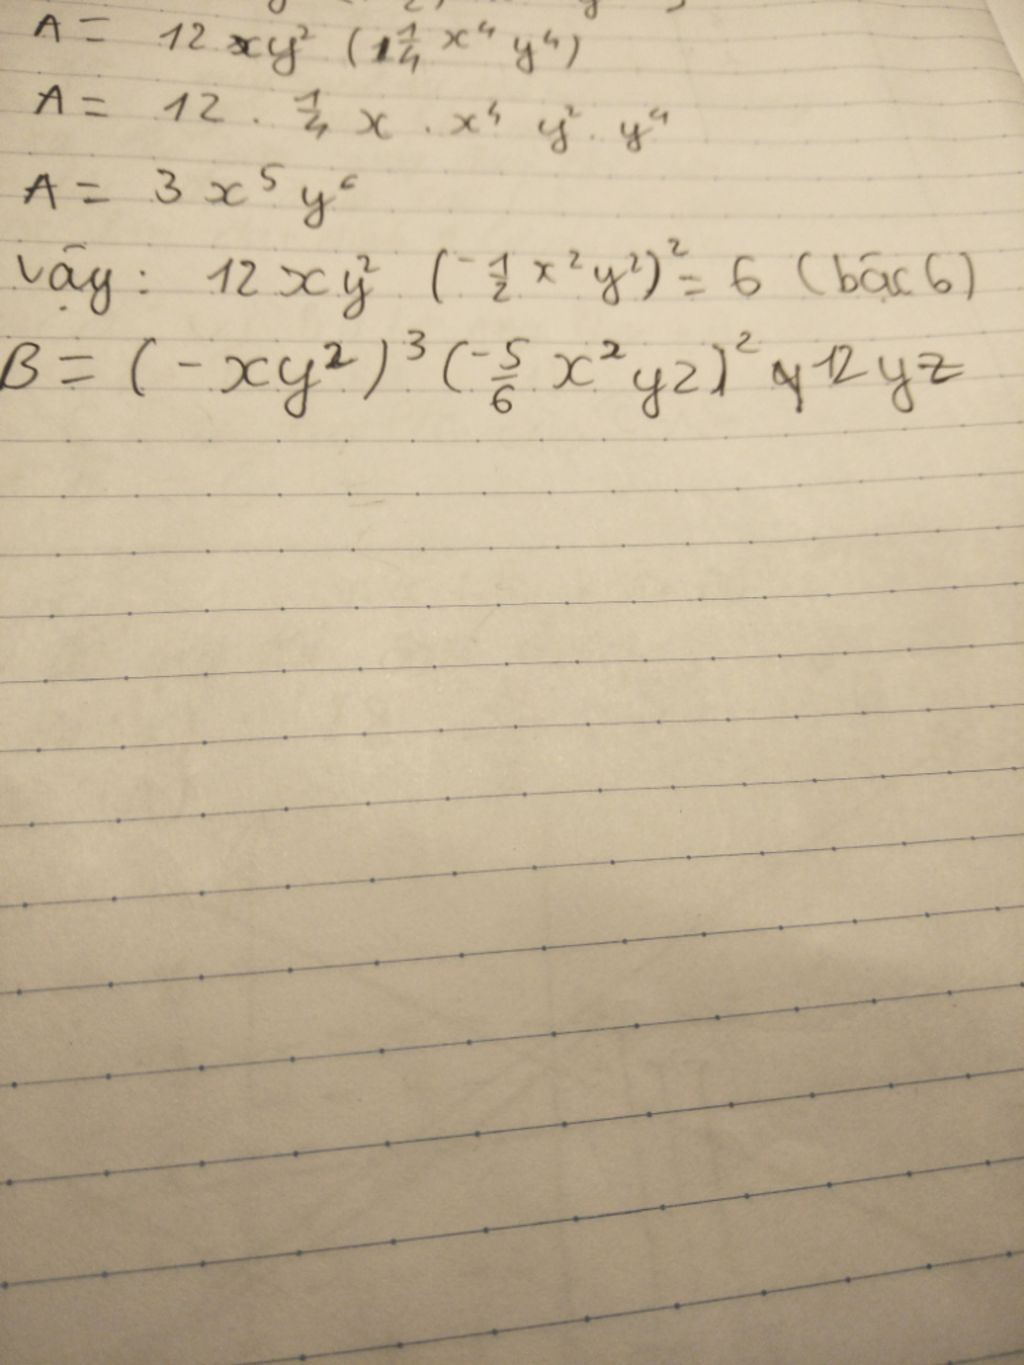 A = 12 xy² (1/4 x⁴ y⁴)
A = 12 . 1/4 x . x⁴ y² . y⁴
A = 3 x⁵ y⁶
Vậy : 12 xy² (-1/2 x² y²)² = 6 (bậc 6)
B = (-xy²)³ (-5/6 x² yz)² 12 yz